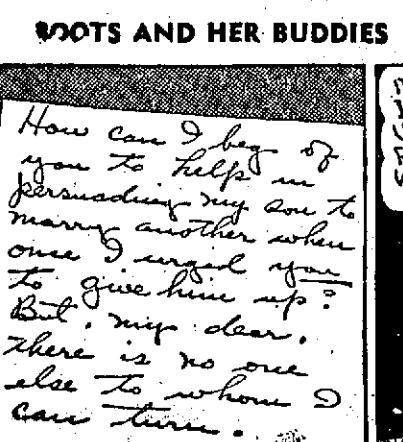 BOOTS AND HER BUDDIES
How can I beg of
you to help in
persuading my son to
marry another when
once I urged you
to give him up?
But, my dear,
there is no one
else to whom I
can turn.